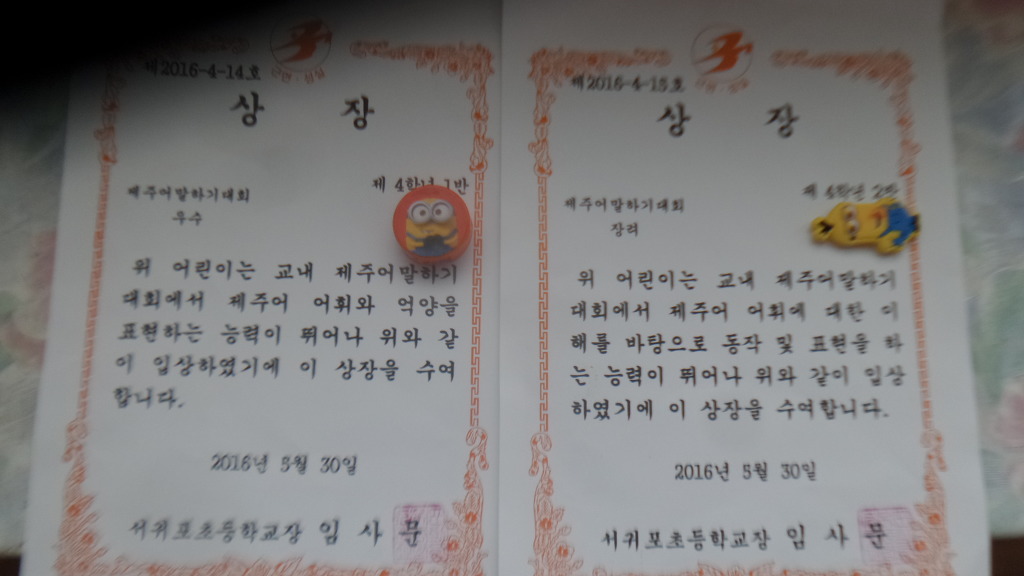 제2016-4-14호
상 장
제 4학년 1반
제주어말하기대회
우수
위 어린이는 교내 제주어말하기
대회에서 제주어 어휘와 억양을
표현하는 능력이 뛰어나 위와 같
이 입상하였기에 이 상장을 수여
합니다.
2016년 5월 30일
서귀포초등학교장 임 사 문
제2016-4-15호
상 장
제 4학년 2반
제주어말하기대회
장려
위 어린이는 교내 제주어말하기
대회에서 제주어 어휘에 대한 이
해를 바탕으로 동작 및 표현을 하
는 능력이 뛰어나 위와 같이 입상
하였기에 이 상장을 수여합니다.
2016년 5월 30일
서귀포초등학교장 임 사 문